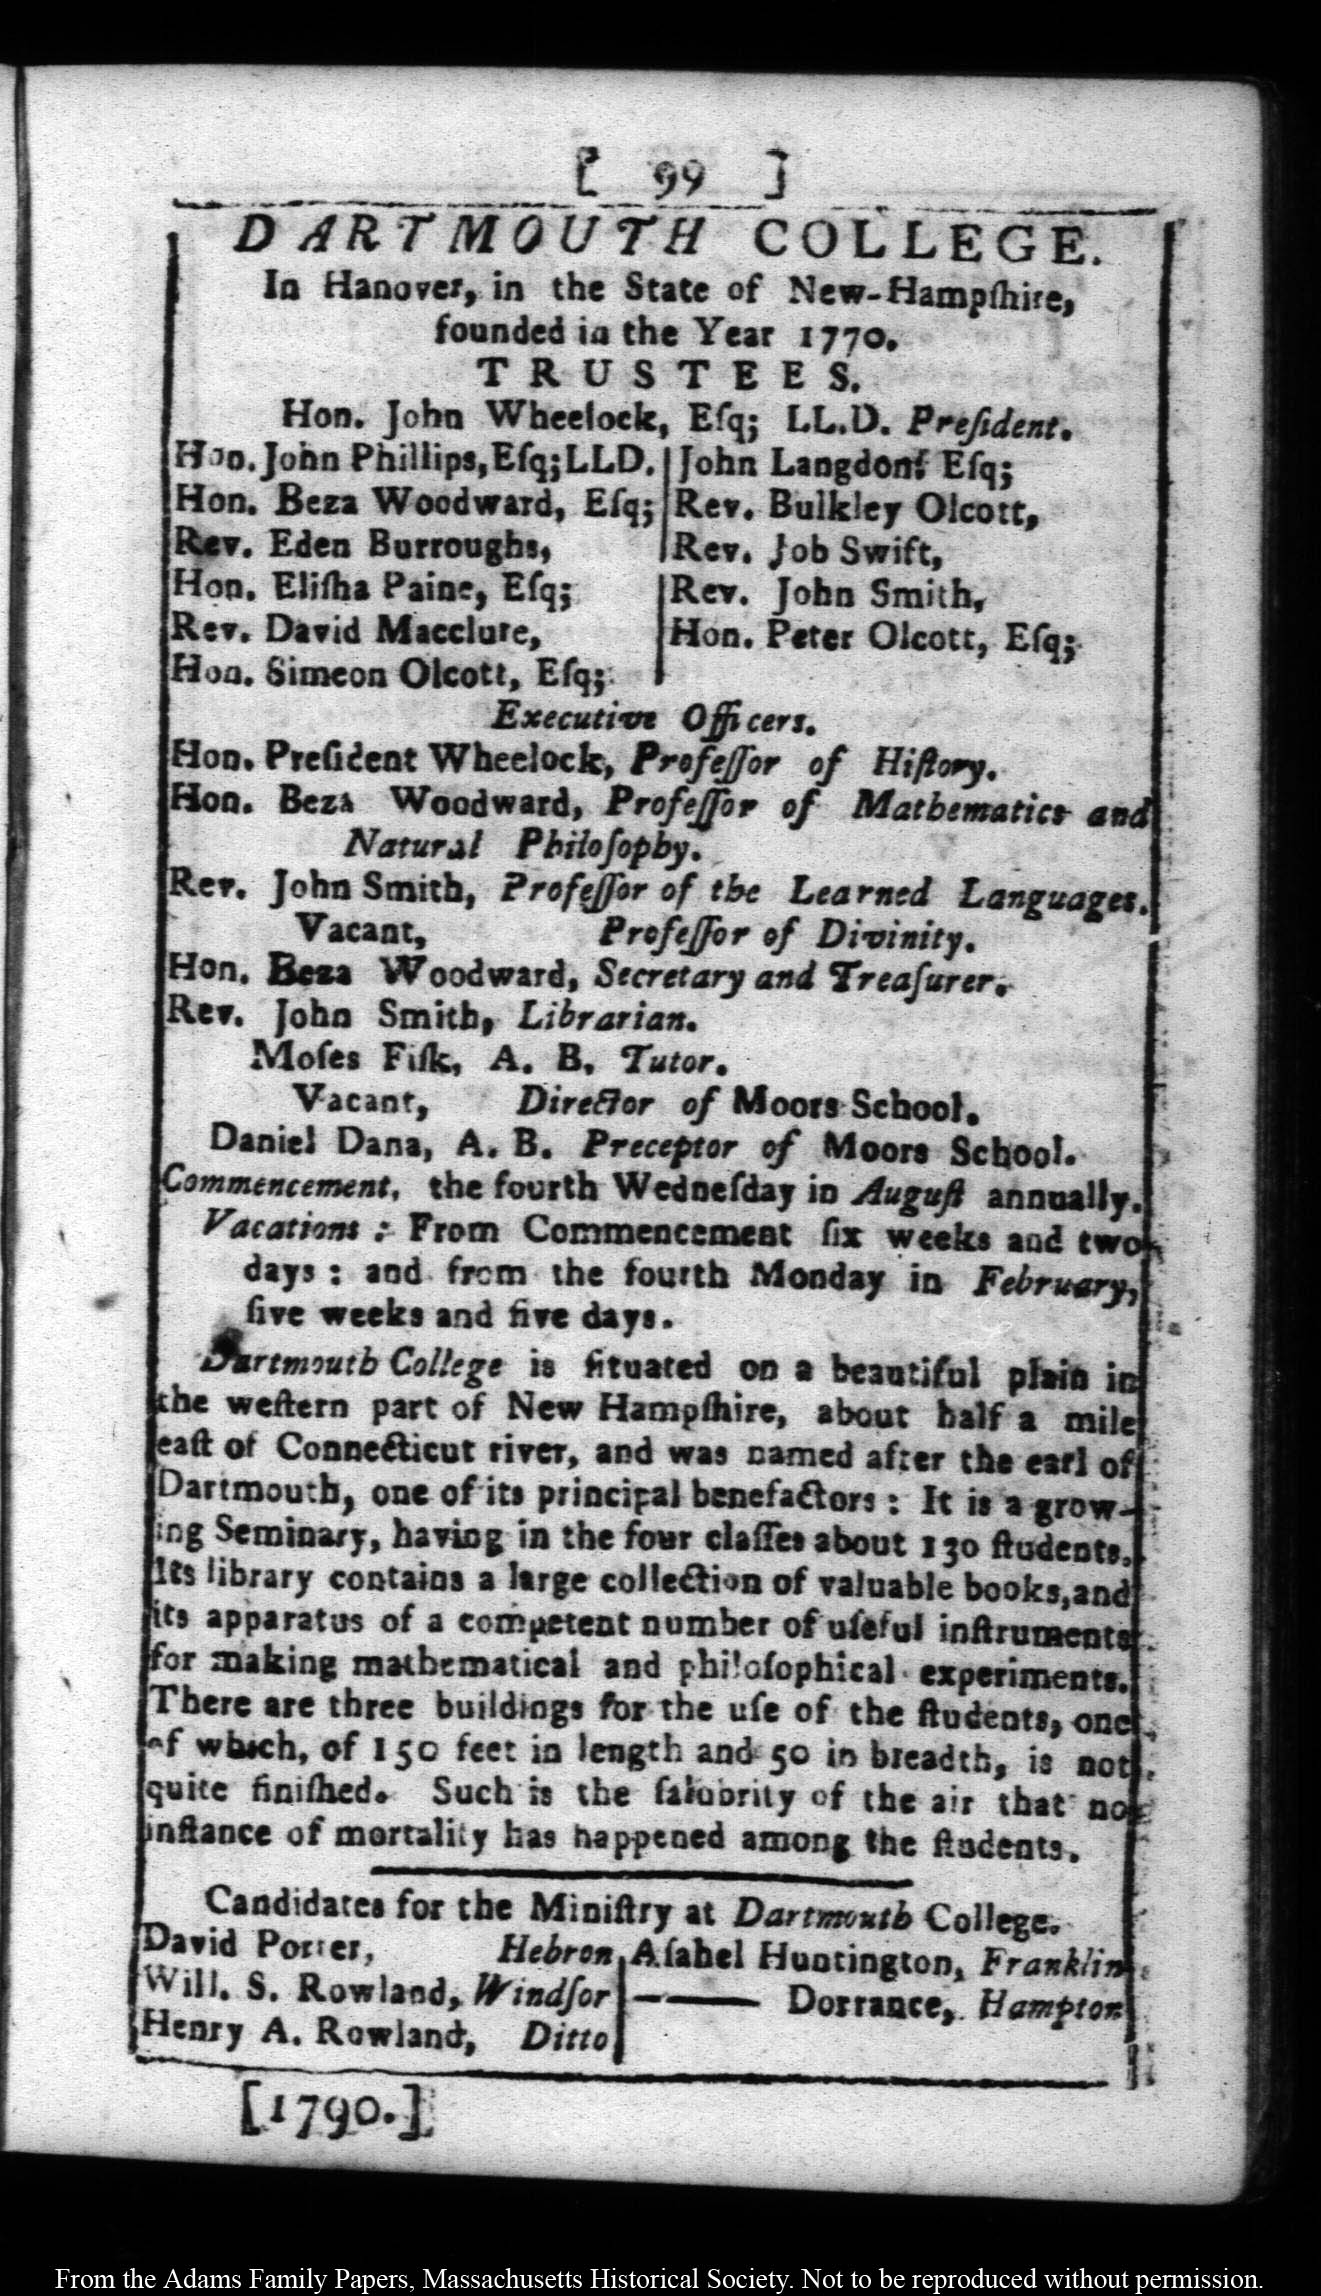 [ 99 ]
DARTMOUTH COLLEGE.
In Hanover, in the State of New-Hampſhire,
founded in the Year 1770.
TRUSTEES.
Hon. John Wheelock, Eſq; LL.D. Preſident.
Hon. John Phillips, Eſq; LLD.
Hon. Beza Woodward, Eſq;
Rev. Eden Burroughs,
Hon. Eliſha Paine, Eſq;
Rev. David Macclure,
Hon. Simeon Olcott, Eſq;
John Langdon, Eſq;
Rev. Bulkley Olcott,
Rev. Job Swift,
Rev. John Smith,
Hon. Peter Olcott, Eſq;
Executive Officers.
Hon. Preſident Wheelock, Profeſſor of Hiſtory.
Hon. Beza Woodward, Profeſſor of Mathematics and
Natural Philoſophy.
Rev. John Smith, Profeſſor of the Learned Languages.
Vacant, Profeſſor of Divinity.
Hon. Beza Woodward, Secretary and Treaſurer.
Rev. John Smith, Librarian.
Moſes Fiſk, A. B. Tutor.
Vacant, Director of Moors School.
Daniel Dana, A. B. Preceptor of Moors School.
Commencement, the fourth Wedneſday in Auguſt annually.
Vacations : From Commencement ſix weeks and two
days : and from the fourth Monday in February,
five weeks and five days.
Dartmouth College is ſituated on a beautiful plain in
the weſtern part of New Hampſhire, about half a mile
eaſt of Connecticut river, and was named after the earl of
Dartmouth, one of its principal benefactors : It is a grow-
ing Seminary, having in the four claſſes about 130 ſtudents.
Its library contains a large collection of valuable books, and
its apparatus of a competent number of uſeful inſtruments
for making mathematical and philoſophical experiments.
There are three buildings for the uſe of the ſtudents, one
of which, of 150 feet in length and 50 in breadth, is not
quite finiſhed. Such is the ſalubrity of the air that no
inſtance of mortality has happened among the ſtudents.
Candidates for the Miniſtry at Dartmouth College.
David Porter, Hebron
Will. S. Rowland, Windſor
Henry A. Rowland, Ditto
Aſahel Huntington, Franklin
—— Dorrance, Hampton
[1790.]
From the Adams Family Papers, Massachusetts Historical Society. Not to be reproduced without permission.